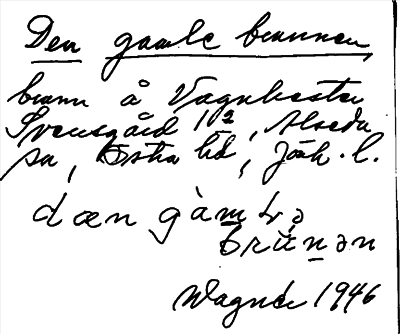 Den gamle brunnen
brunn å Vagnhester
Svensgård 1/2, Alseda
sn, Östra hd, Jönk. l.
dæn gàmlə
brùnən
Wagnér 1946